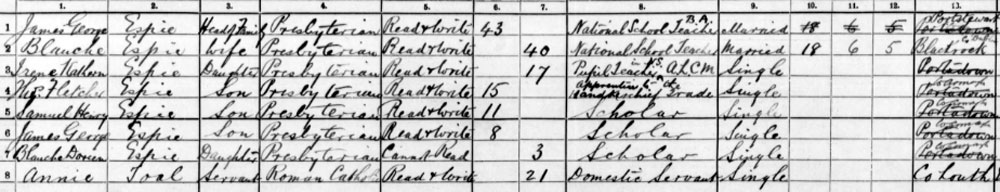 1. 2. 3. 4. 5. 6. 7. 8. 9. 10. 11. 12. 13.
1 James George Espie Head of Family Presbyterian Read & Write 43 National School Teacher B.A. Married 18 6 5 Portstewart
2 Blanche Espie Wife Presbyterian Read & Write 40 National School Teacher Married 18 6 5 Blackrock
3 Irene Kathleen Espie Daughter Presbyterian Read & Write 17 Pupil Teacher in N.S. A.L.C.M Single Portadown
4 Fletcher Espie Son Presbyterian Read & Write 15 Apprentice to Handkerchief Trade Single Portadown
5 Samuel Henry Espie Son Presbyterian Read & Write 11 Scholar Single Portadown
6 James George Espie Son Presbyterian Read & Write 8 Scholar Single Portadown
7 Blanche Doreen Espie Daughter Presbyterian Cannot Read 3 Scholar Single Portadown
8 Annie Toal Servant Roman Catholic Read & Write 21 Domestic Servant Single Co Louth